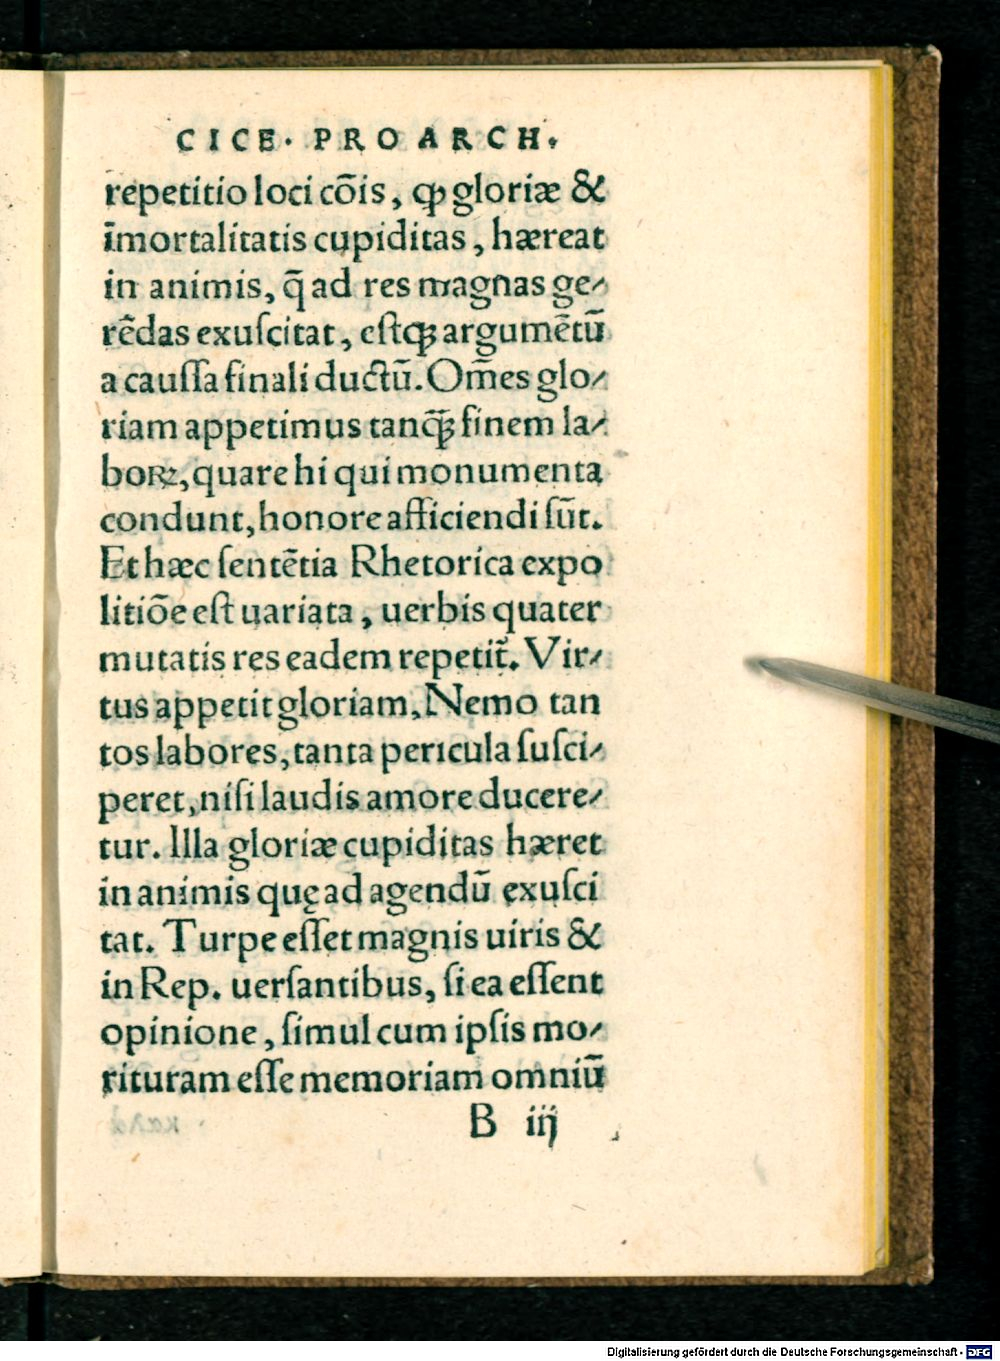 CICE. PRO ARCH.
repetitio loci cōis, ꝙ gloriæ &
īmortalitatis cupiditas, hæreat
in animis, q̄ ad res magnas ge-
rēdas exuſcitat, eſtqꝫ argumētū
a cauſſa finali ductū. Om̄es glo-
riam appetimus tanq̄ꝫ finem la-
boꝝ, quare hi qui monumenta
condunt, honore afficiendi ſūt.
Et hæc ſentētia Rhetorica expo
litiōe eſt uariata, uerbis quater
mutatis res eadem repetit̃. Vir-
tus appetit gloriam, Nemo tan
tos labores, tanta pericula ſuſci-
peret, niſi laudis amore ducere-
tur. Illa gloriæ cupiditas hæret
in animis quę ad agendū exuſci
tat. Turpe eſſet magnis uiris &
in Rep. uerſantibus, ſi ea eſſent
opinione, ſimul cum ipſis mo-
rituram eſſe memoriam omniū
B iij
Digitalisierung gefördert durch die Deutsche Forschungsgemeinschaft - DFG